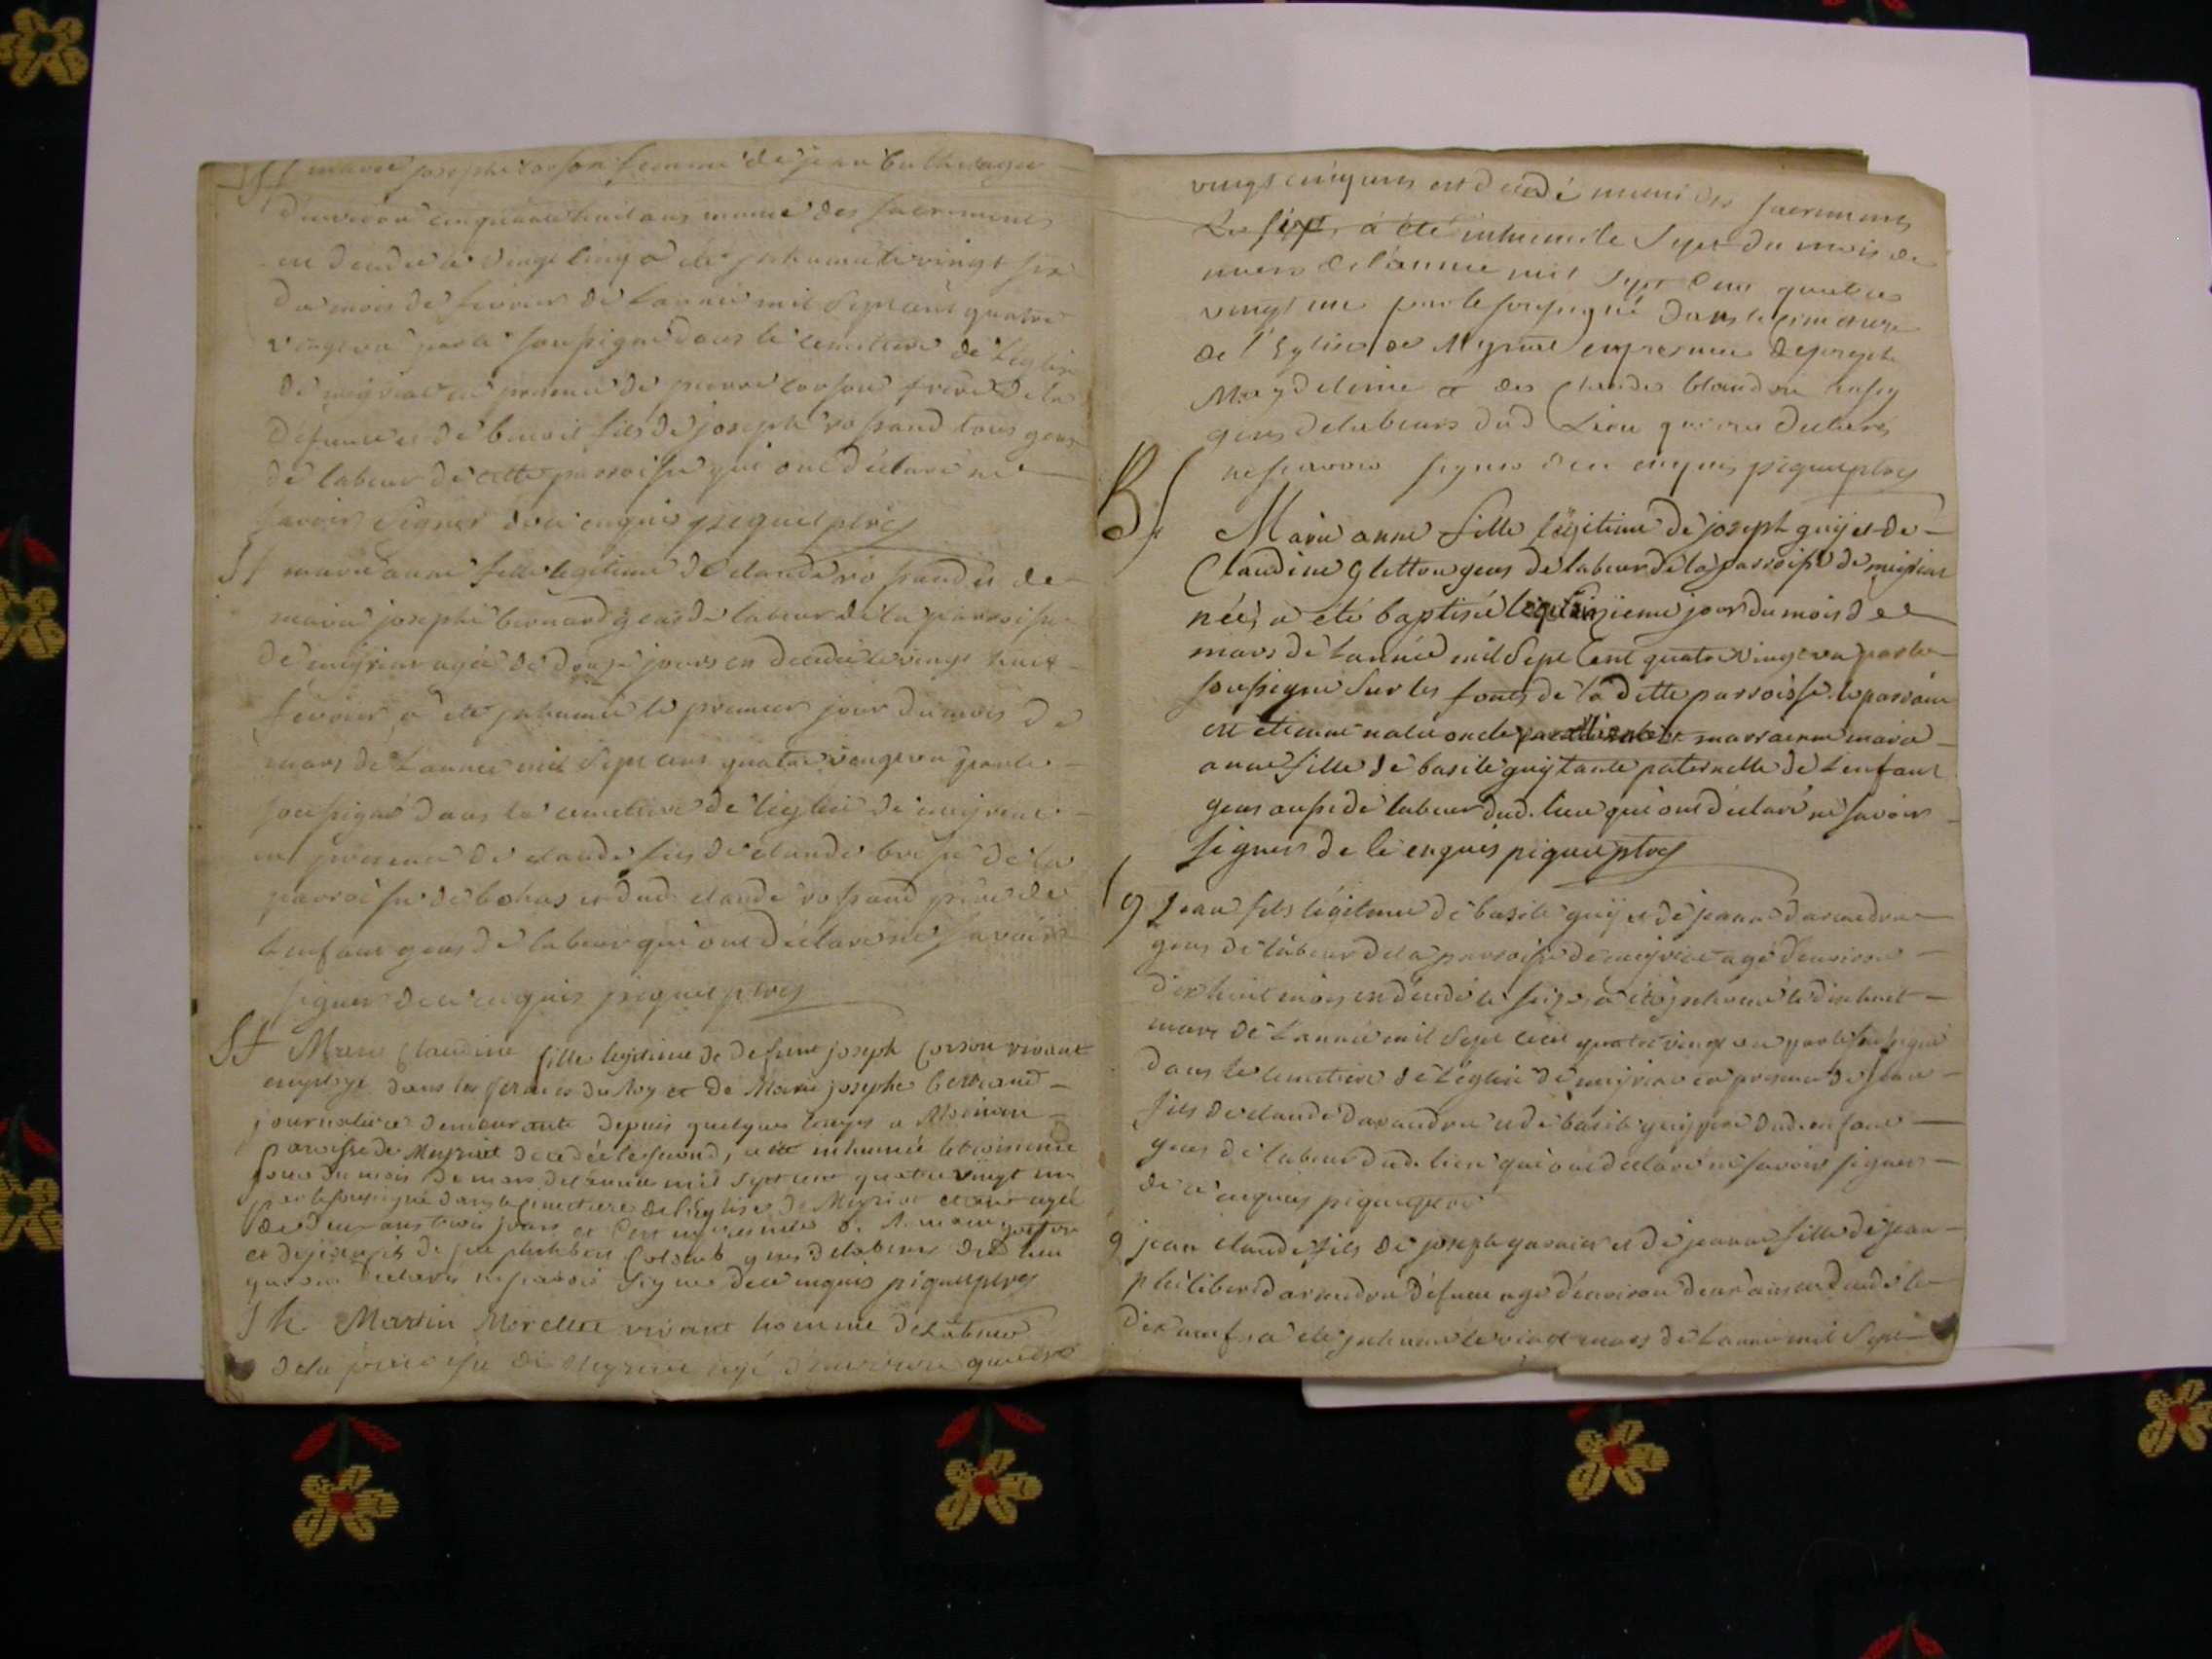 Sf marie josephe corson femme de jean
d'environ cinquante huit ans munie des sacremens
en decedée le vingt cinq a été inhumée le vingt six
du mois de fevrier de l'année mil sept cent quatre
vingt un par le soussigné dans le cemetiere de l'eglise
de meyriat en presence de pierre corson frere de la
defunte et de benoit fils de joseph rossand tous gens
de labeur de cette parroisse qui ont déclaré ne
savoir signer de ce enquis piquet ptre
Sf marie anne fille legitime de claude rossand et de
marie josephe bernard gens de labeur de la parroisse
de meyriat agée de douze jours en decedée le vingt huit
fevrier a été inhumée le premier jour du mois de
mars de l'année mil sept cent quatre vingt un par le
soussigné dans le cemetiere de l'eglise de meyriat
en presence de claude fils de claude de la
parroisse de bohas et dud. claude rossand pere de
l'enfant gens de labeur qui ont déclaré ne savoir
signer de ce enquis piquet ptre
Sf Marie Claudine fille legitime de defunt joseph Corson vivant
employé dans les fermes du Roy et de Marie josephe bernand
journaliere demeurante depuis quelques temps a
paroisse de Meyriat decedée le second, a été inhumée le troisieme
jour du mois de mars de l'année mil sept cent quatre vingt un
par le soussigné dans le cimetiere de l'Eglise de Meyriat étant agée
de deux ans trois jours et en presence
et de fils de philibert gens de labeur dud lieu
qui ont declaré ne savoir signer de ce enquis piquet ptre
Sh. Martin Morellet vivant homme de labeur
de la paroisse de Meyriat agé d'environ quatre
vingt cinq ans est decedé muni des sacremens
Le sept, a été inhumé le sept du mois de
mars de l'année mil sept cent quatre
vingt un par le soussigné dans le cimetiere
de l'Eglise de Meyriat en presence de joseph
et de Claude
gens de labeurs dud Lieu qui ont declaré
ne scavoir signer de ce enquis piquet ptre
B f Marie anne fille légitime de joseph guy et de
Claudine gletton gens de labeur de la parroisse de meyriat
née, a été baptisée le quinzieme jour du mois de
mars de l'année mil sept cent quatre vingt un par le
soussigné sur les fonts de la ditte parroisse. le parrain
est etienne oncle marraine marie
anne fille de basile guy tante paternelle de l'enfant
gens aussi de labeur dud. lieu qui ont déclaré ne savoir
signer de ce enquis piquet ptre
g Jean fils légitime de basile guy et de jeanne
gens de labeur de la parroisse de meyriat agé d'environ
dix huit mois en decedé le seize a été inhumé le dix huit
mars de l'année mil sept cent quatre vingt un par le soussigné
dans le cemetiere de l'eglise de meyriat en presence de jean
fils de claude et de basile guy pere dud. enfant
gens de labeur dud. lieu qui ont déclaré ne savoir signer
de ce enquis piquet ptre
g jean claude fils de joseph et de jeanne fille de jean
philibert défunt agé d'environ deux ans en decedé le
dix neuf a été inhumé le vingt mars de l'année mil sept